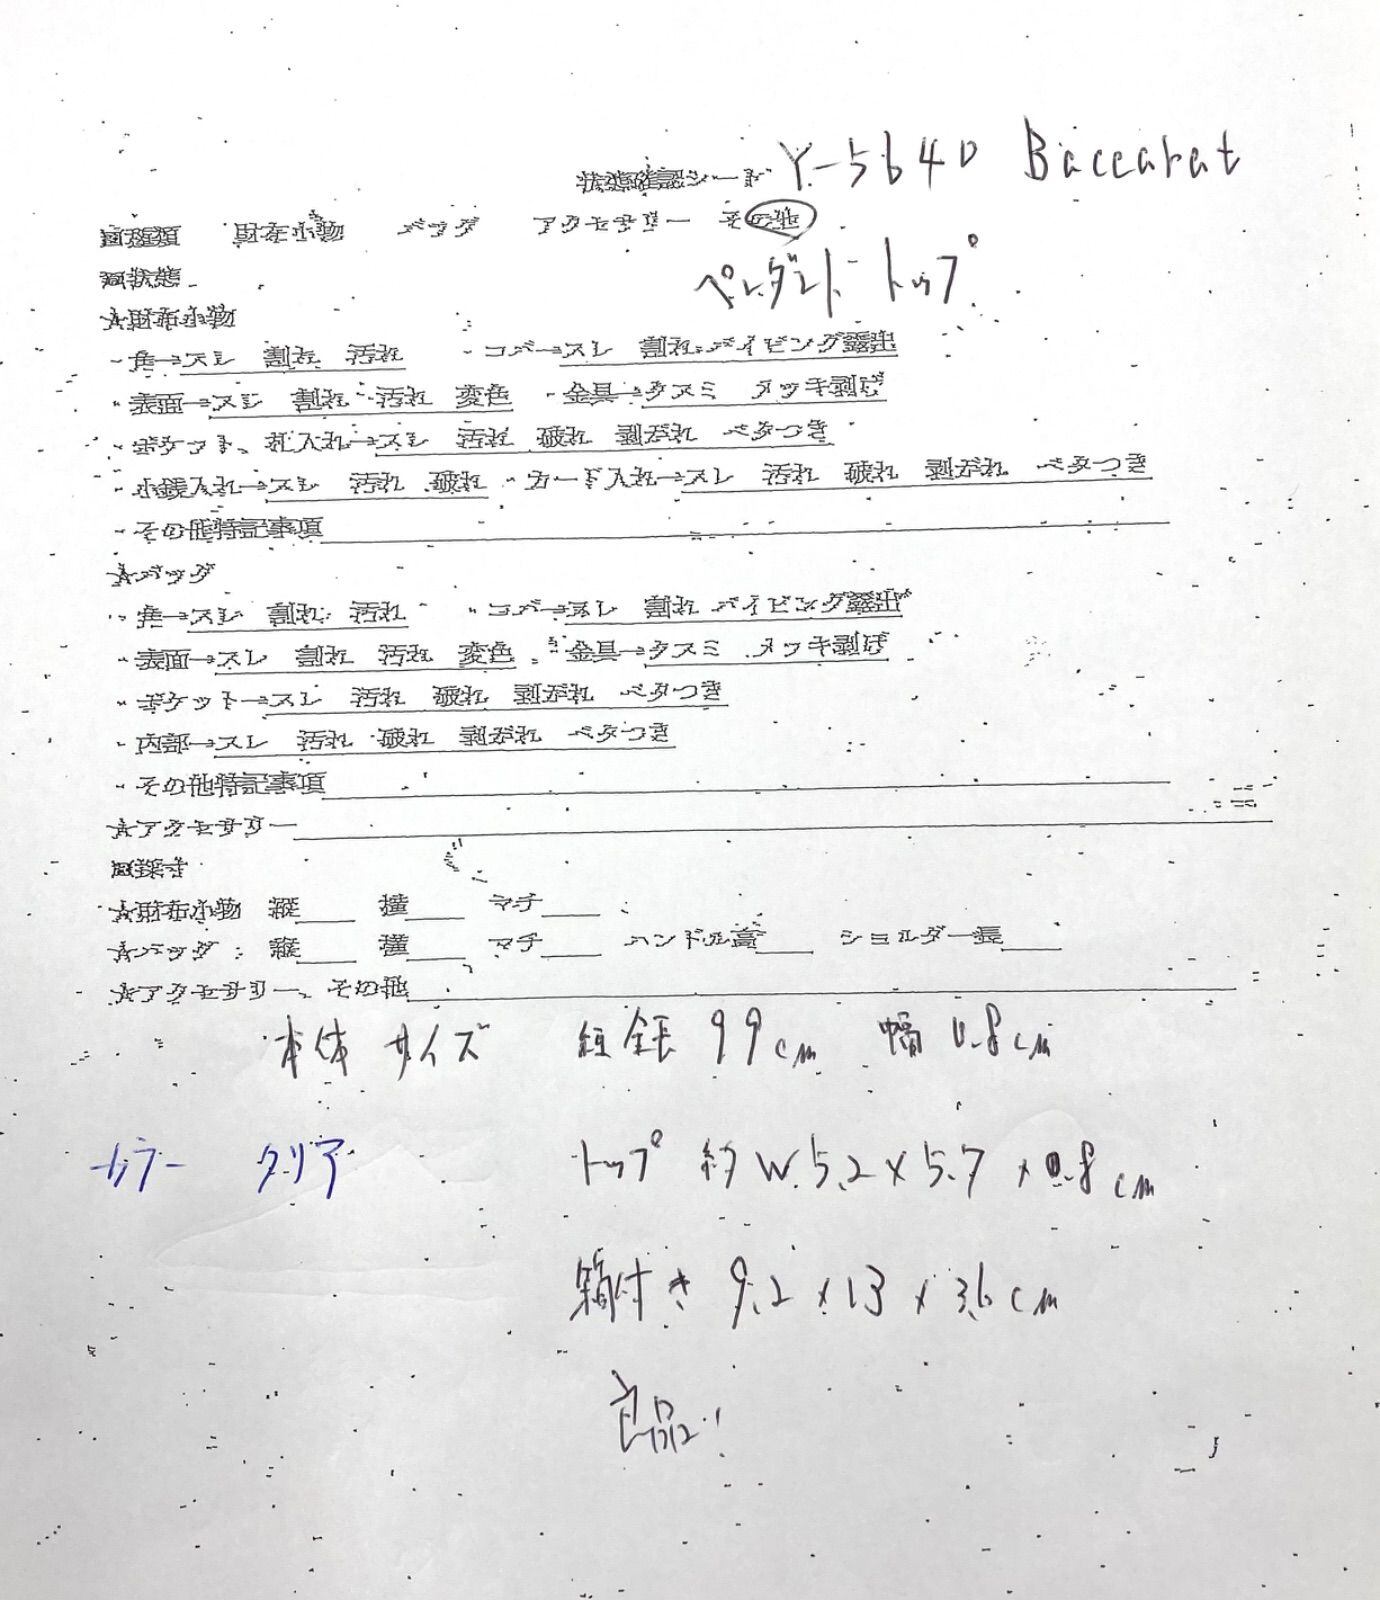 状態確認シート Y-5640 Baccarat
□種類 財布小物 バッグ アクセサリー その他
ペンダント トップ
□状態
☆財布小物
・角→スレ 割れ 汚れ ・コバ→スレ 割れ パイピング露出
・表面→スレ 割れ 汚れ 変色 ・金具→クスミ メッキ剥げ
・ポケット、札入れ→スレ 汚れ 破れ 剥がれ ベタつき
・小銭入れ→スレ 汚れ 破れ ・カード入れ→スレ 汚れ 破れ 剥がれ ベタつき
・その他特記事項
☆バッグ
・角→スレ 割れ 汚れ ・コバ→スレ 割れ パイピング露出
・表面→スレ 割れ 汚れ 変色 ・金具→クスミ メッキ剥げ
・ポケット→スレ 汚れ 破れ 剥がれ ベタつき
・内部→スレ 汚れ 破れ 剥がれ ベタつき
・その他特記事項
☆アクセサリー
□採寸
☆財布小物 縦 横 マチ
☆バッグ 縦 横 マチ ハンドル高 ショルダー長
☆アクセサリー、その他
本体サイズ 紐全長 99cm 幅 0.8cm
カラー クリア トップ 約 W.5.2×5.7×0.8cm
箱付き 9.2×13×3.6cm
良品